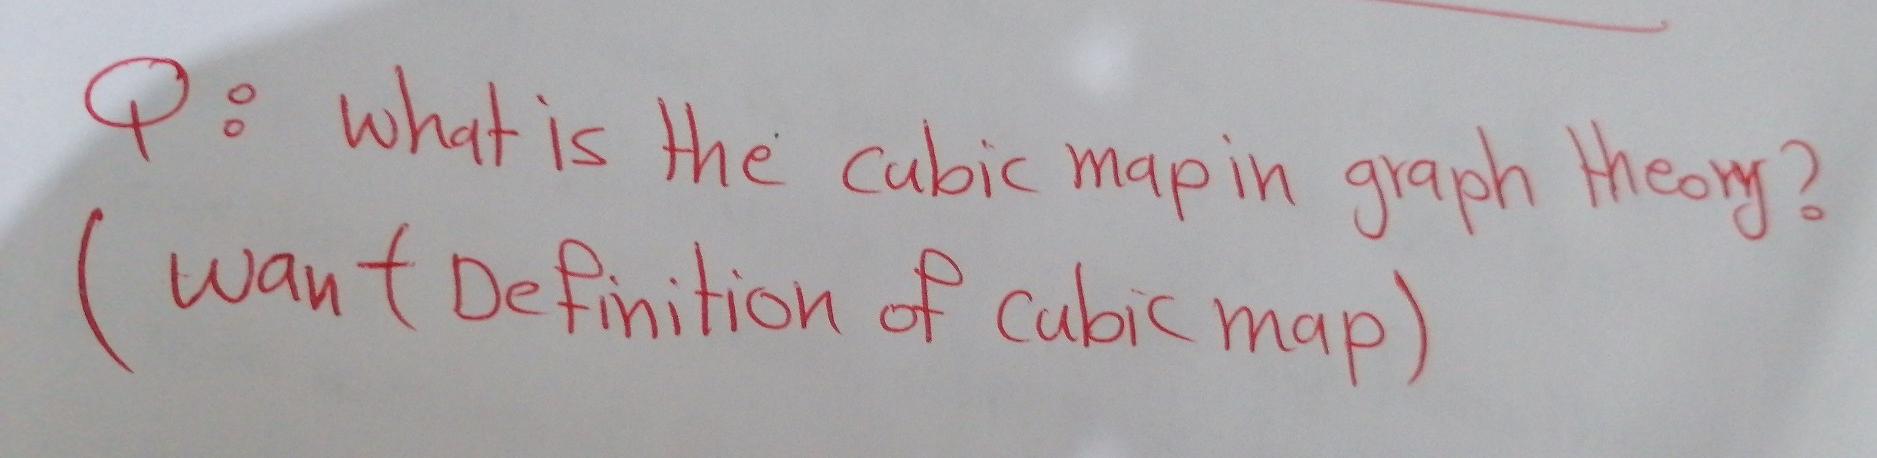 Q: what is the cubic map in graph theory?
(want Definition of cubic map)